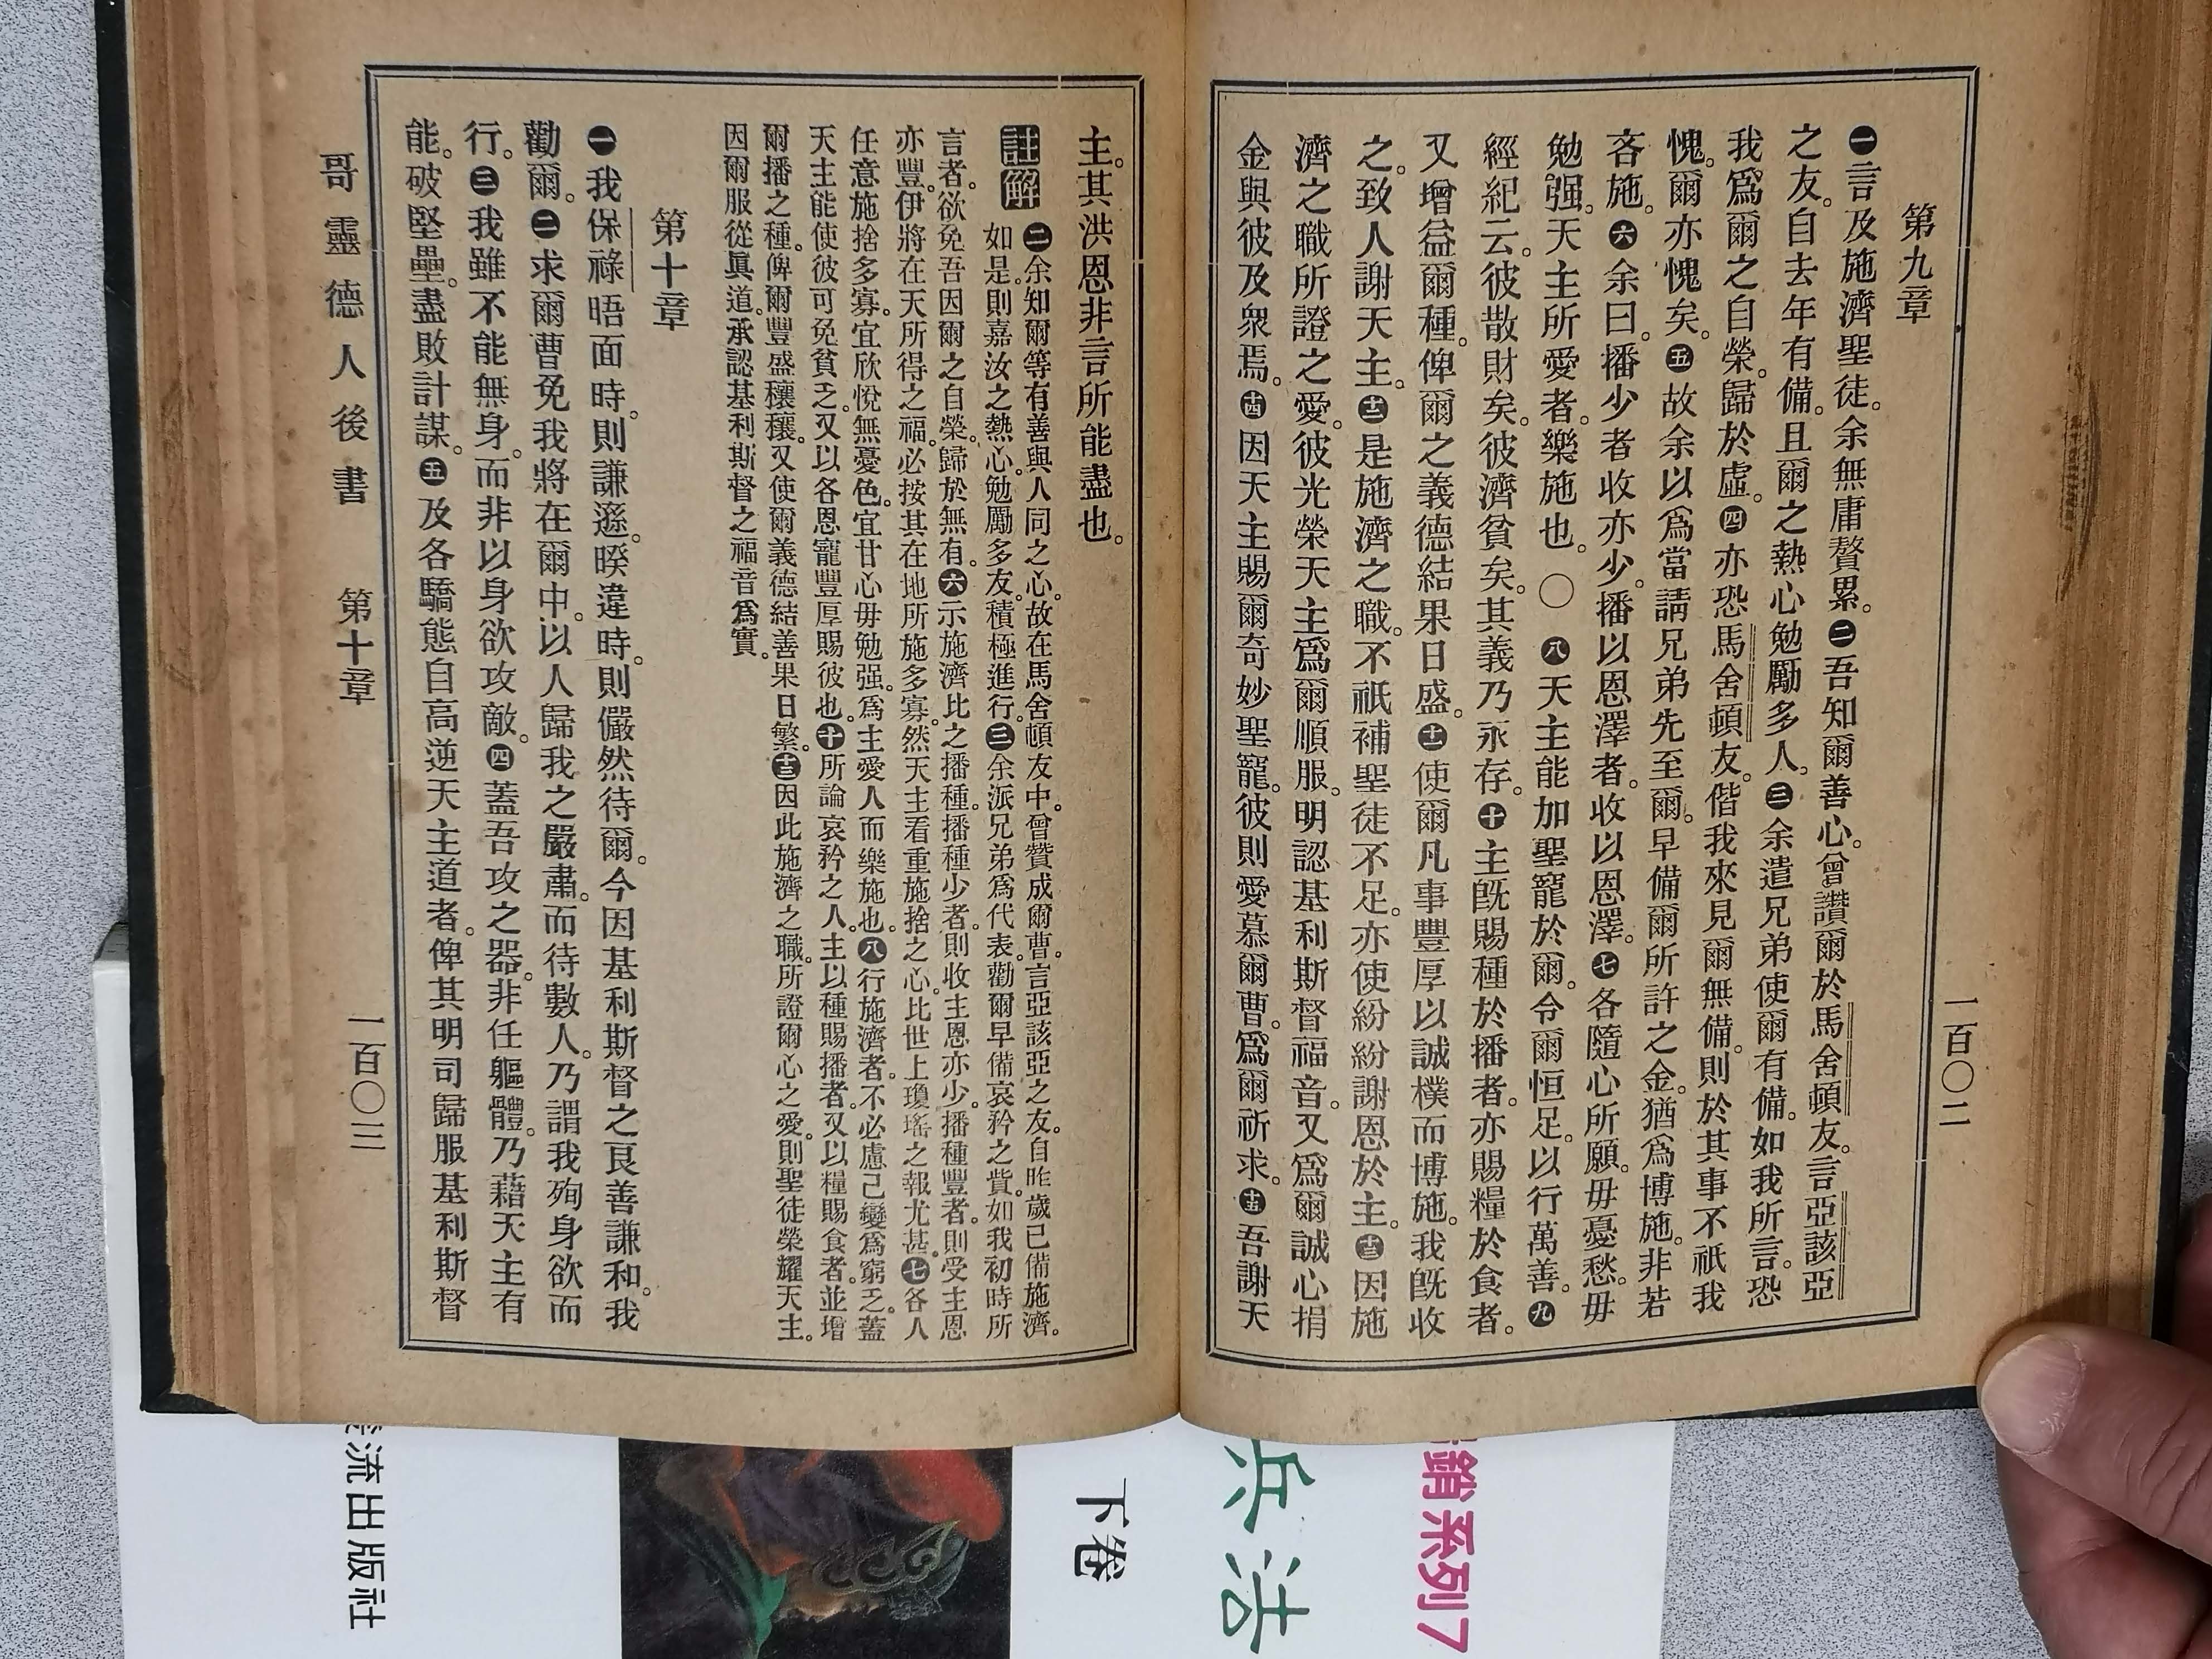 第九章
一百〇二
㊀言及施濟聖徒。余無庸贅累。㊁吾知爾善心。曾讚爾於馬舍頓友。言亞該亞
之友。自去年有備。且爾之熱心勉勵多人。㊂余遣兄弟使爾有備。如我所言。恐
我爲爾之自榮。歸於虛。㊃亦恐馬舍頓友。偕我來見爾無備。則於其事不祇我
愧。爾亦愧矣。㊄故余以爲當請兄弟先至爾。早備爾所許之金。猶爲博施。非若
吝施。㊅余曰。播少者收亦少。播以恩澤者。收以恩澤。㊆各隨心所願。毋憂愁。毋
勉强。天主所愛者。樂施也。〇㊇天主能加聖寵於爾。令爾恒足。以行萬善。㊈
經紀云。彼散財矣。彼濟貧矣。其義乃永存。㊉主旣賜種於播者。亦賜糧於食者。
又增益爾種。俾爾之義德結果日盛。⓫使爾凡事豐厚以誠樸而博施。我旣收
之。致人謝天主。⓬是施濟之職。不祇補聖徒不足。亦使紛紛謝恩於主。⓭因施
濟之職所證之愛。彼光榮天主爲爾順服。明認基利斯督福音。又爲爾誠心捐
金與彼及衆焉。⓮因天主賜爾奇妙聖寵。彼則愛慕爾曹。爲爾祈求。⓯吾謝天
主。其洪恩非言所能盡也。
註解 ㊁余知爾等有善與人同之心。故在馬舍頓友中。曾贊成爾曹。言亞該亞之友。自昨歲已備施濟。
如是。則嘉汝之熱心。勉勵多友。積極進行。㊂余派兄弟爲代表。勸爾早備哀矜之貲。如我初時所
言者。欲免吾因爾之自榮。歸於無有。㊅示施濟比之播種。播種少者。則收主恩亦少。播種豐者。則受主恩
亦豐。伊將在天所得之福。必按其在地所施多寡。然天主看重施捨之心。比世上瓊瑤之報尤甚。㊆各人
任意施捨多寡。宜欣悅無憂色。宜甘心毋勉强。爲主愛人而樂施也。㊇行施濟者。不必慮己變爲窮乏。蓋
天主能使彼可免貧乏。又以各恩寵豐厚賜彼也。㊉所論哀矜之人。主以種賜播者。又以糧賜食者。並增
爾播之種。俾爾豐盛穰穰。又使爾義德結善果日繁。⓭因此施濟之職。所證爾心之愛。則聖徒榮耀天主。
因爾服從眞道。承認基利斯督之福音爲實。
第十章
㊀我保祿晤面時。則謙遜。暌違時。則儼然待爾。今因基利斯督之良善謙和。我
勸爾。㊁求爾曹免我將在爾中。以人歸我之嚴肅。而待數人。乃謂我殉身欲而
行。㊂我雖不能無身。而非以身欲攻敵。㊃蓋吾攻之器。非任軀體。乃藉天主有
能。破堅壘。盡敗計謀。㊄及各驕態自高逆天主道者。俾其明司歸服基利斯督
哥靈德人後書 第十章 一百〇三
銷系列7
兵法
下卷
流出版社